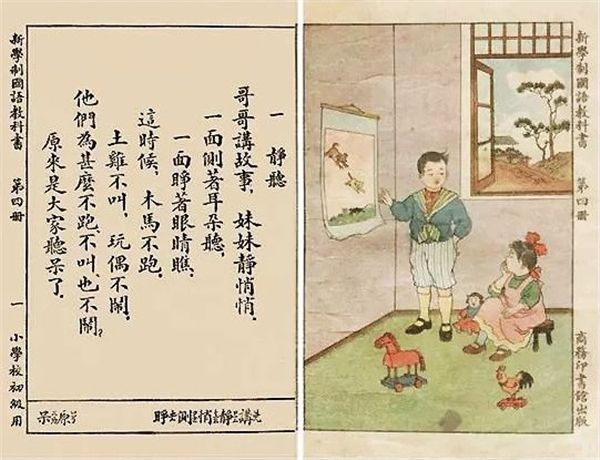 新學制國語教科書 第四冊
商務印書館出版
一 靜聽
哥哥講故事，妹妹靜悄悄，
一面側著耳朵聽，
一面睜著眼睛瞧，
這時候，木馬不跑，
土雞不叫，玩偶不鬧，
他們為甚麼不跑，不叫也不鬧？
原來是大家聽呆了。
講靜悄側睜
原呆
新學制國語教科書 第四冊 一 小學校初級用